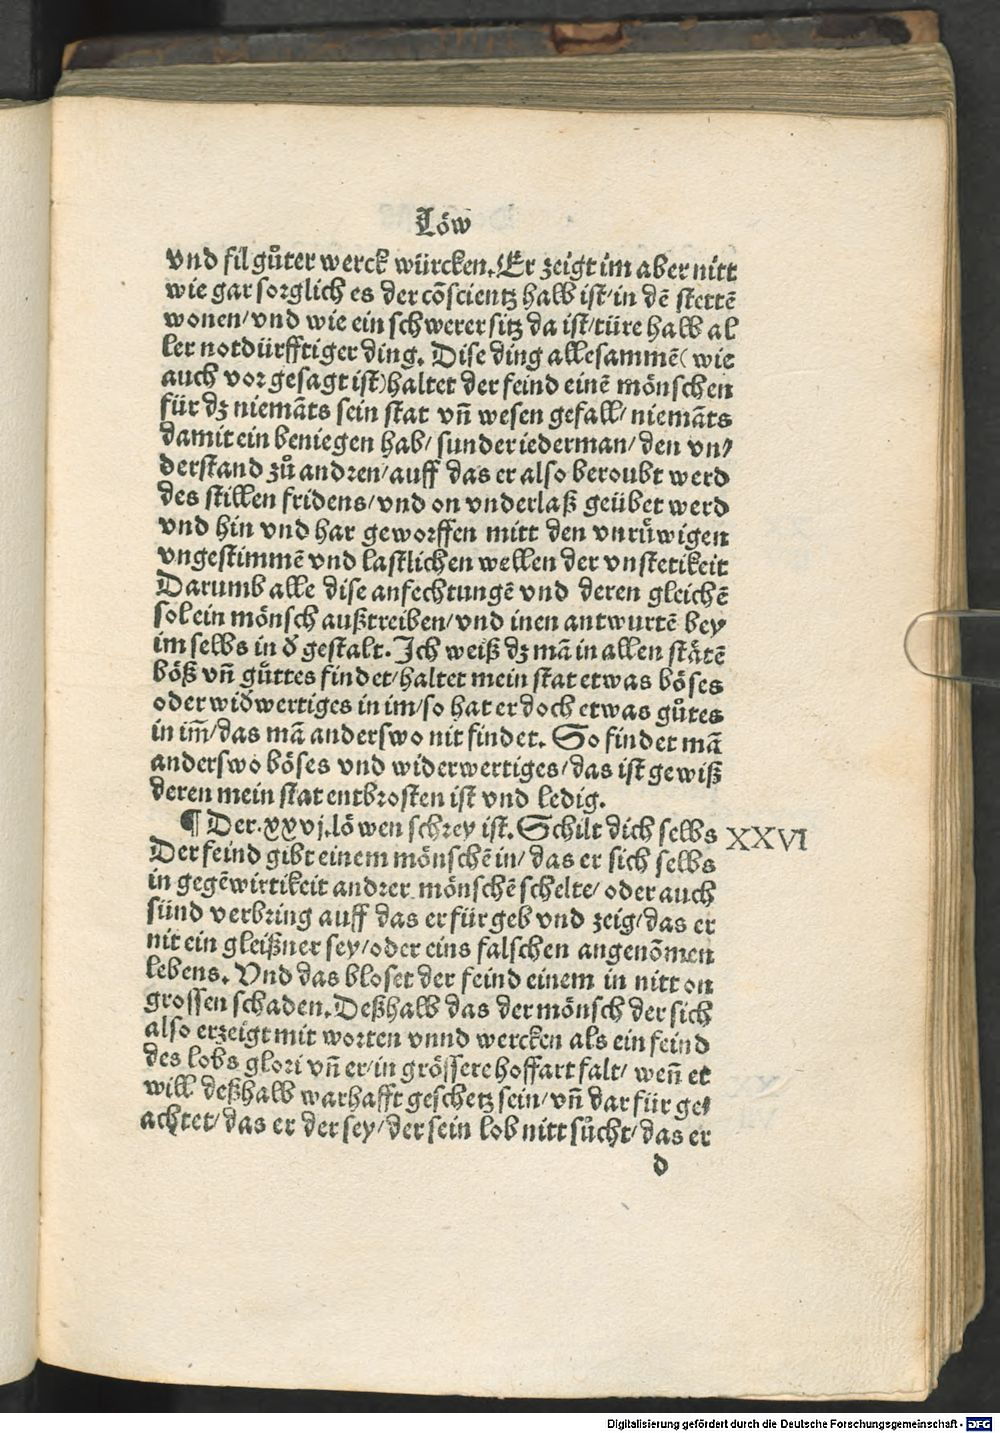 Löw
vnd fil gůter werck würcken. Er zeigt im aber nitt
wie gar sorglich es der cõscientz halb ist/in dẽ stettẽ
wonen/vnd wie ein schwerer sitz da ist/türe halb al
ler notdürfftiger ding. Dise ding alle sammẽ(wie
auch vor gesagt ist)haltet der feind einẽ mönschen
für dz niemãts sein stat vñ wesen gefall/niemãts
damit ein beniegen hab/sunder iederman/den vn⸗
derstand zů andren/auff das er also beroubt werd
des stillen fridens/vnd on vnderlaß geübet werd
vnd hin vnd har geworffen mitt den vnrüwigen
vngestimmẽ vnd lastlichen wellen der vnstetikeit
Darumb alle dise anfechtungẽ vnd deren gleichẽ
sol ein mönsch außtreiben/vnd inen antwurtẽ bey
im selbs in d̕ gestalt. Ich weiß dz mã in allen stätẽ
böß vñ gůttes findet/haltet mein stat etwas böses
oder wid̕wertiges in im/so hat er doch etwas gůtes
in im̃/das mã anderswo nit findet. So findet mã
anderswo böses vnd widerwertiges/das ist gewiß
deren mein stat entbrosten ist vnd ledig.
¶ Der.xxvj.löwen schrey ist. Schilt dich selbs
XXVI
Der feind gibt einem mönschẽ in/das er sich selbs
in gegẽwirtikeit andrer mönschẽ schelte/oder auch
sünd verbring auff das er für geb vnd zeig/das er
nit ein gleißner sey/oder eins falschen angenõmen
lebens. Vnd das bloset der feind einem in nitt on
grossen schaden. Deßhalb das der mönsch der sich
also erzeigt mit worten vnnd wercken als ein feind
des lobs glori vñ er/in grössere hoffart falt/weñ er
will deßhalb warhafft geschetz sein/vñ dar für ge⸗
achtet/das er der sey/der sein lob nitt sücht/das er
d
Digitalisierung gefördert durch die Deutsche Forschungsgemeinschaft - DFG